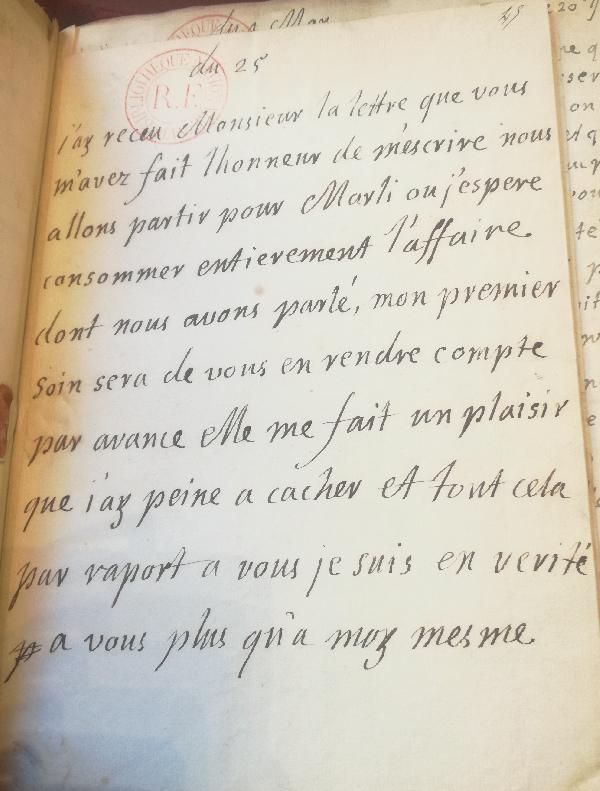 45
du 25
BIBLIOTHEQUE
R.F.
j'ay receu Monsieur la lettre que vous
m'avez fait lhonneur de m'escrire nous
allons partir pour Marli ou j'espere
consommer entierement l'affaire
dont nous avons parlé, mon premier
soin sera de vous en rendre compte
par avance elle me fait un plaisir
que j'ay peine a cacher et tout cela
par raport a vous je suis en verité
a vous plus qu'a moy mesme